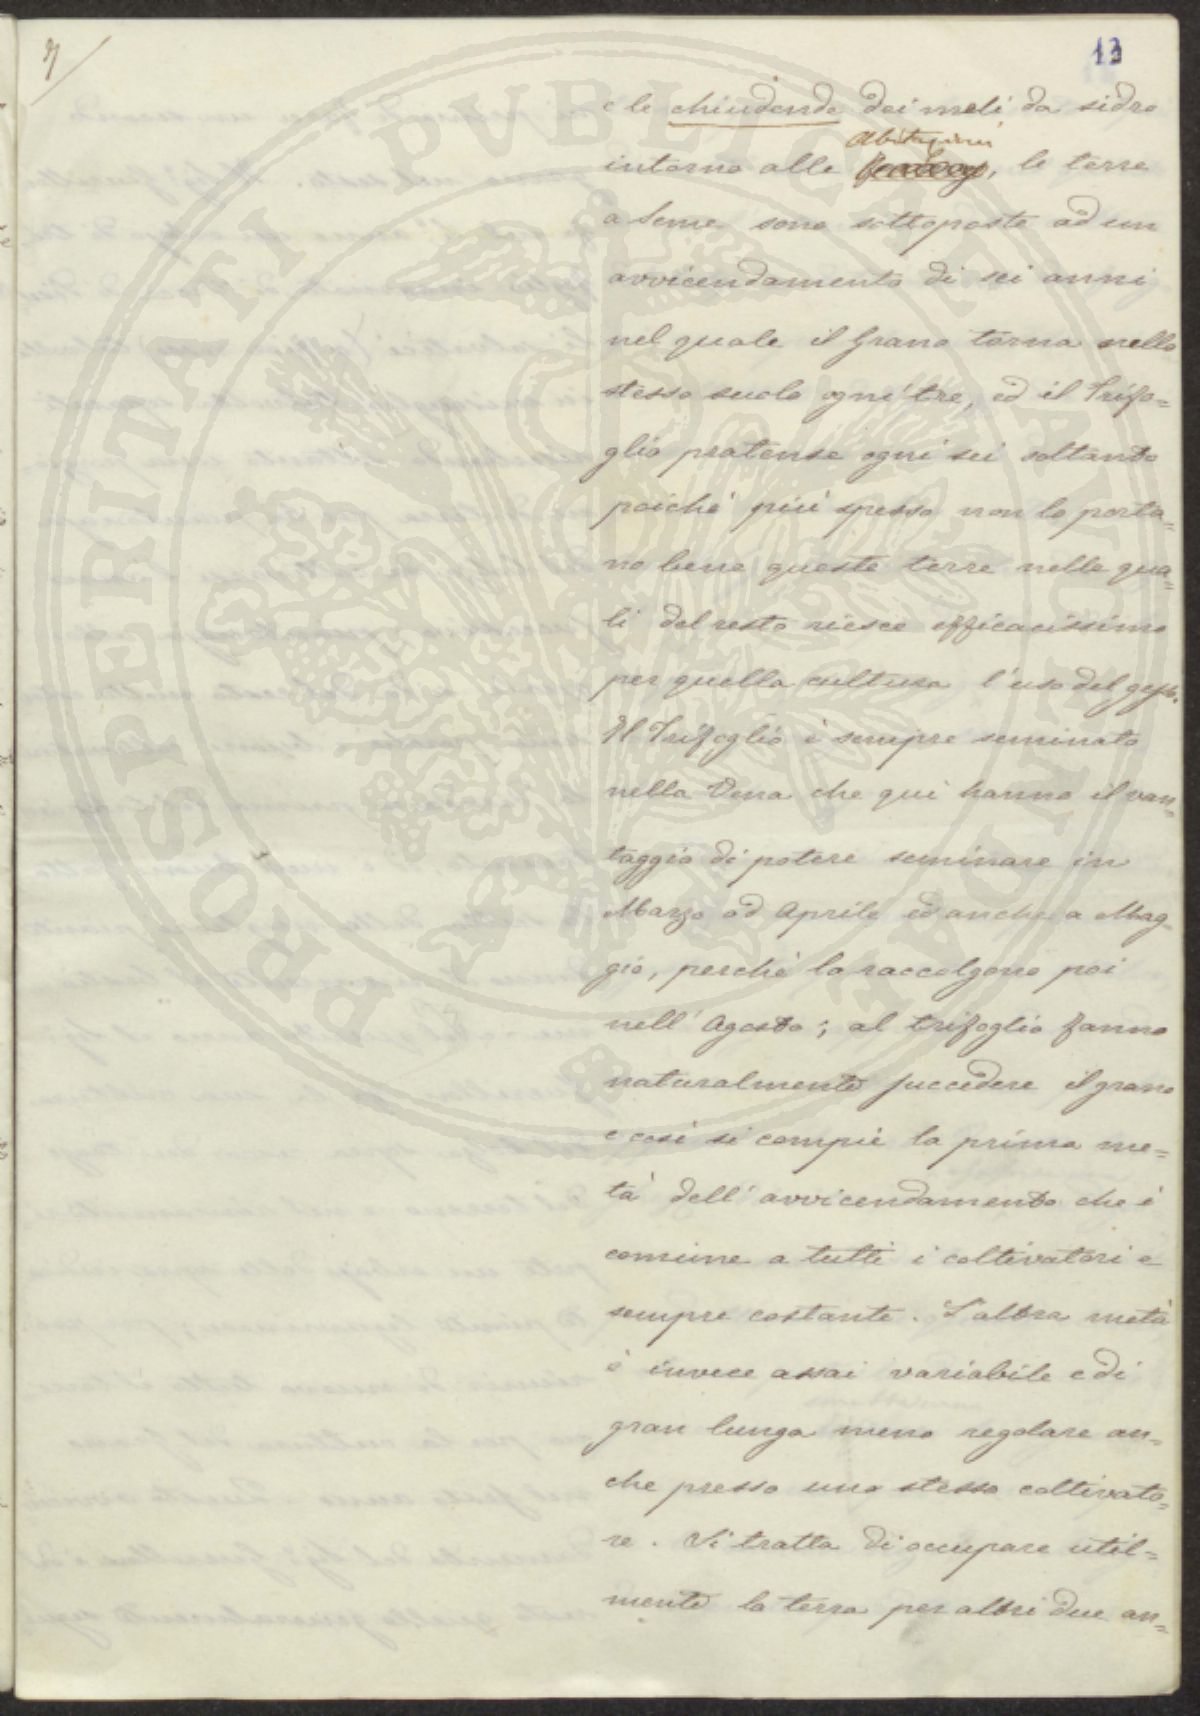 7/
13
e le chiudende dei meli da sidro
Abitazioni
intorno alle, le terre
a Seme sono sottoposte ad un
avvicendamento di sei anni
nel quale il Grano torna nello
stesso suolo ogni tre, ed il Trifo=
glio pratense ogni sei soltanto
poichè più spesso non lo porta=
no bene queste terre nelle qua=
li del resto riesce efficacissimo
per quella cultura l'uso del gesso.
Il Trifoglio è sempre seminato
nella Vena che qui hanno il van=
taggio di potere seminare in
Marzo od Aprile ed anche a Mag-
gio, perchè la raccolgono poi
nell'Agosto; al trifoglio fanno
naturalmente succedere il grano
e così si compie la prima me=
tà dell'avvicendamento che è
comune a tutti i coltivatori e
sempre costante. L'altra metà
è invece assai variabile e di
gran lunga meno regolare an=
che presso uno stesso coltivato=
re. Si tratta di occupare util=
mente la terra per altri due an=
PROSPERITATI PUBLICAE AUGENDAE